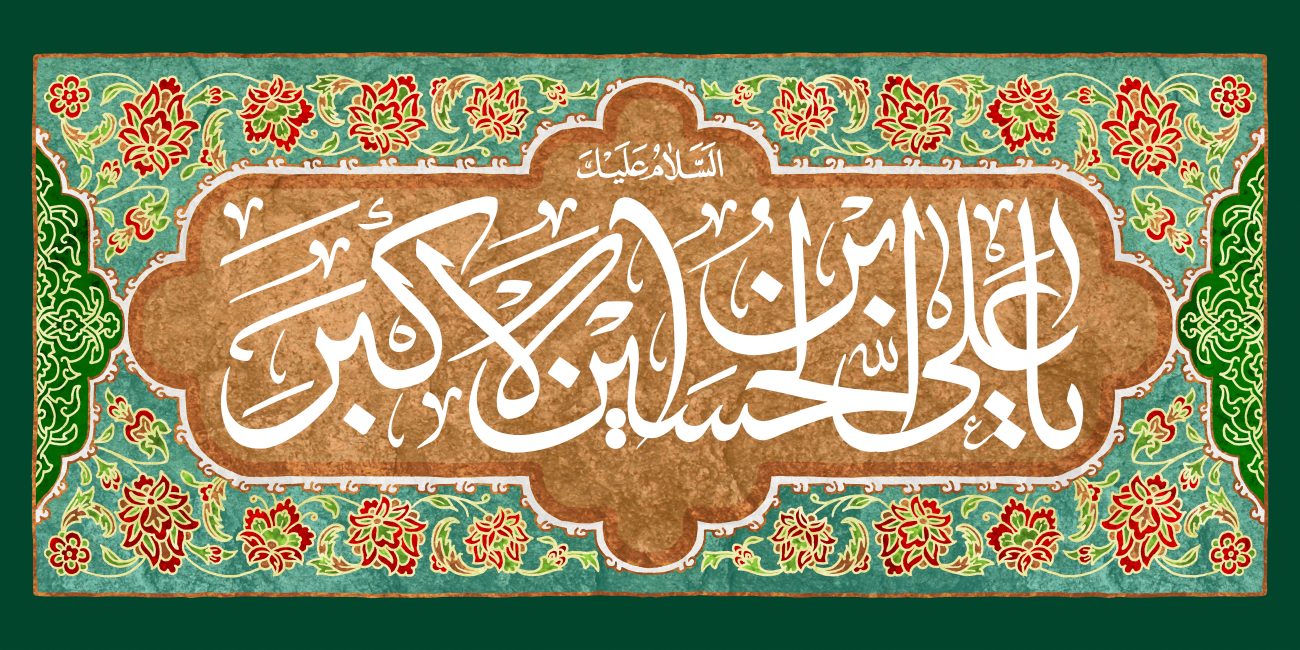 اَلسَّلامُ عَلَیْكَ
یا عَلیَّ بْنَ الْحُسَیْنِ الْأَکْبَرَ